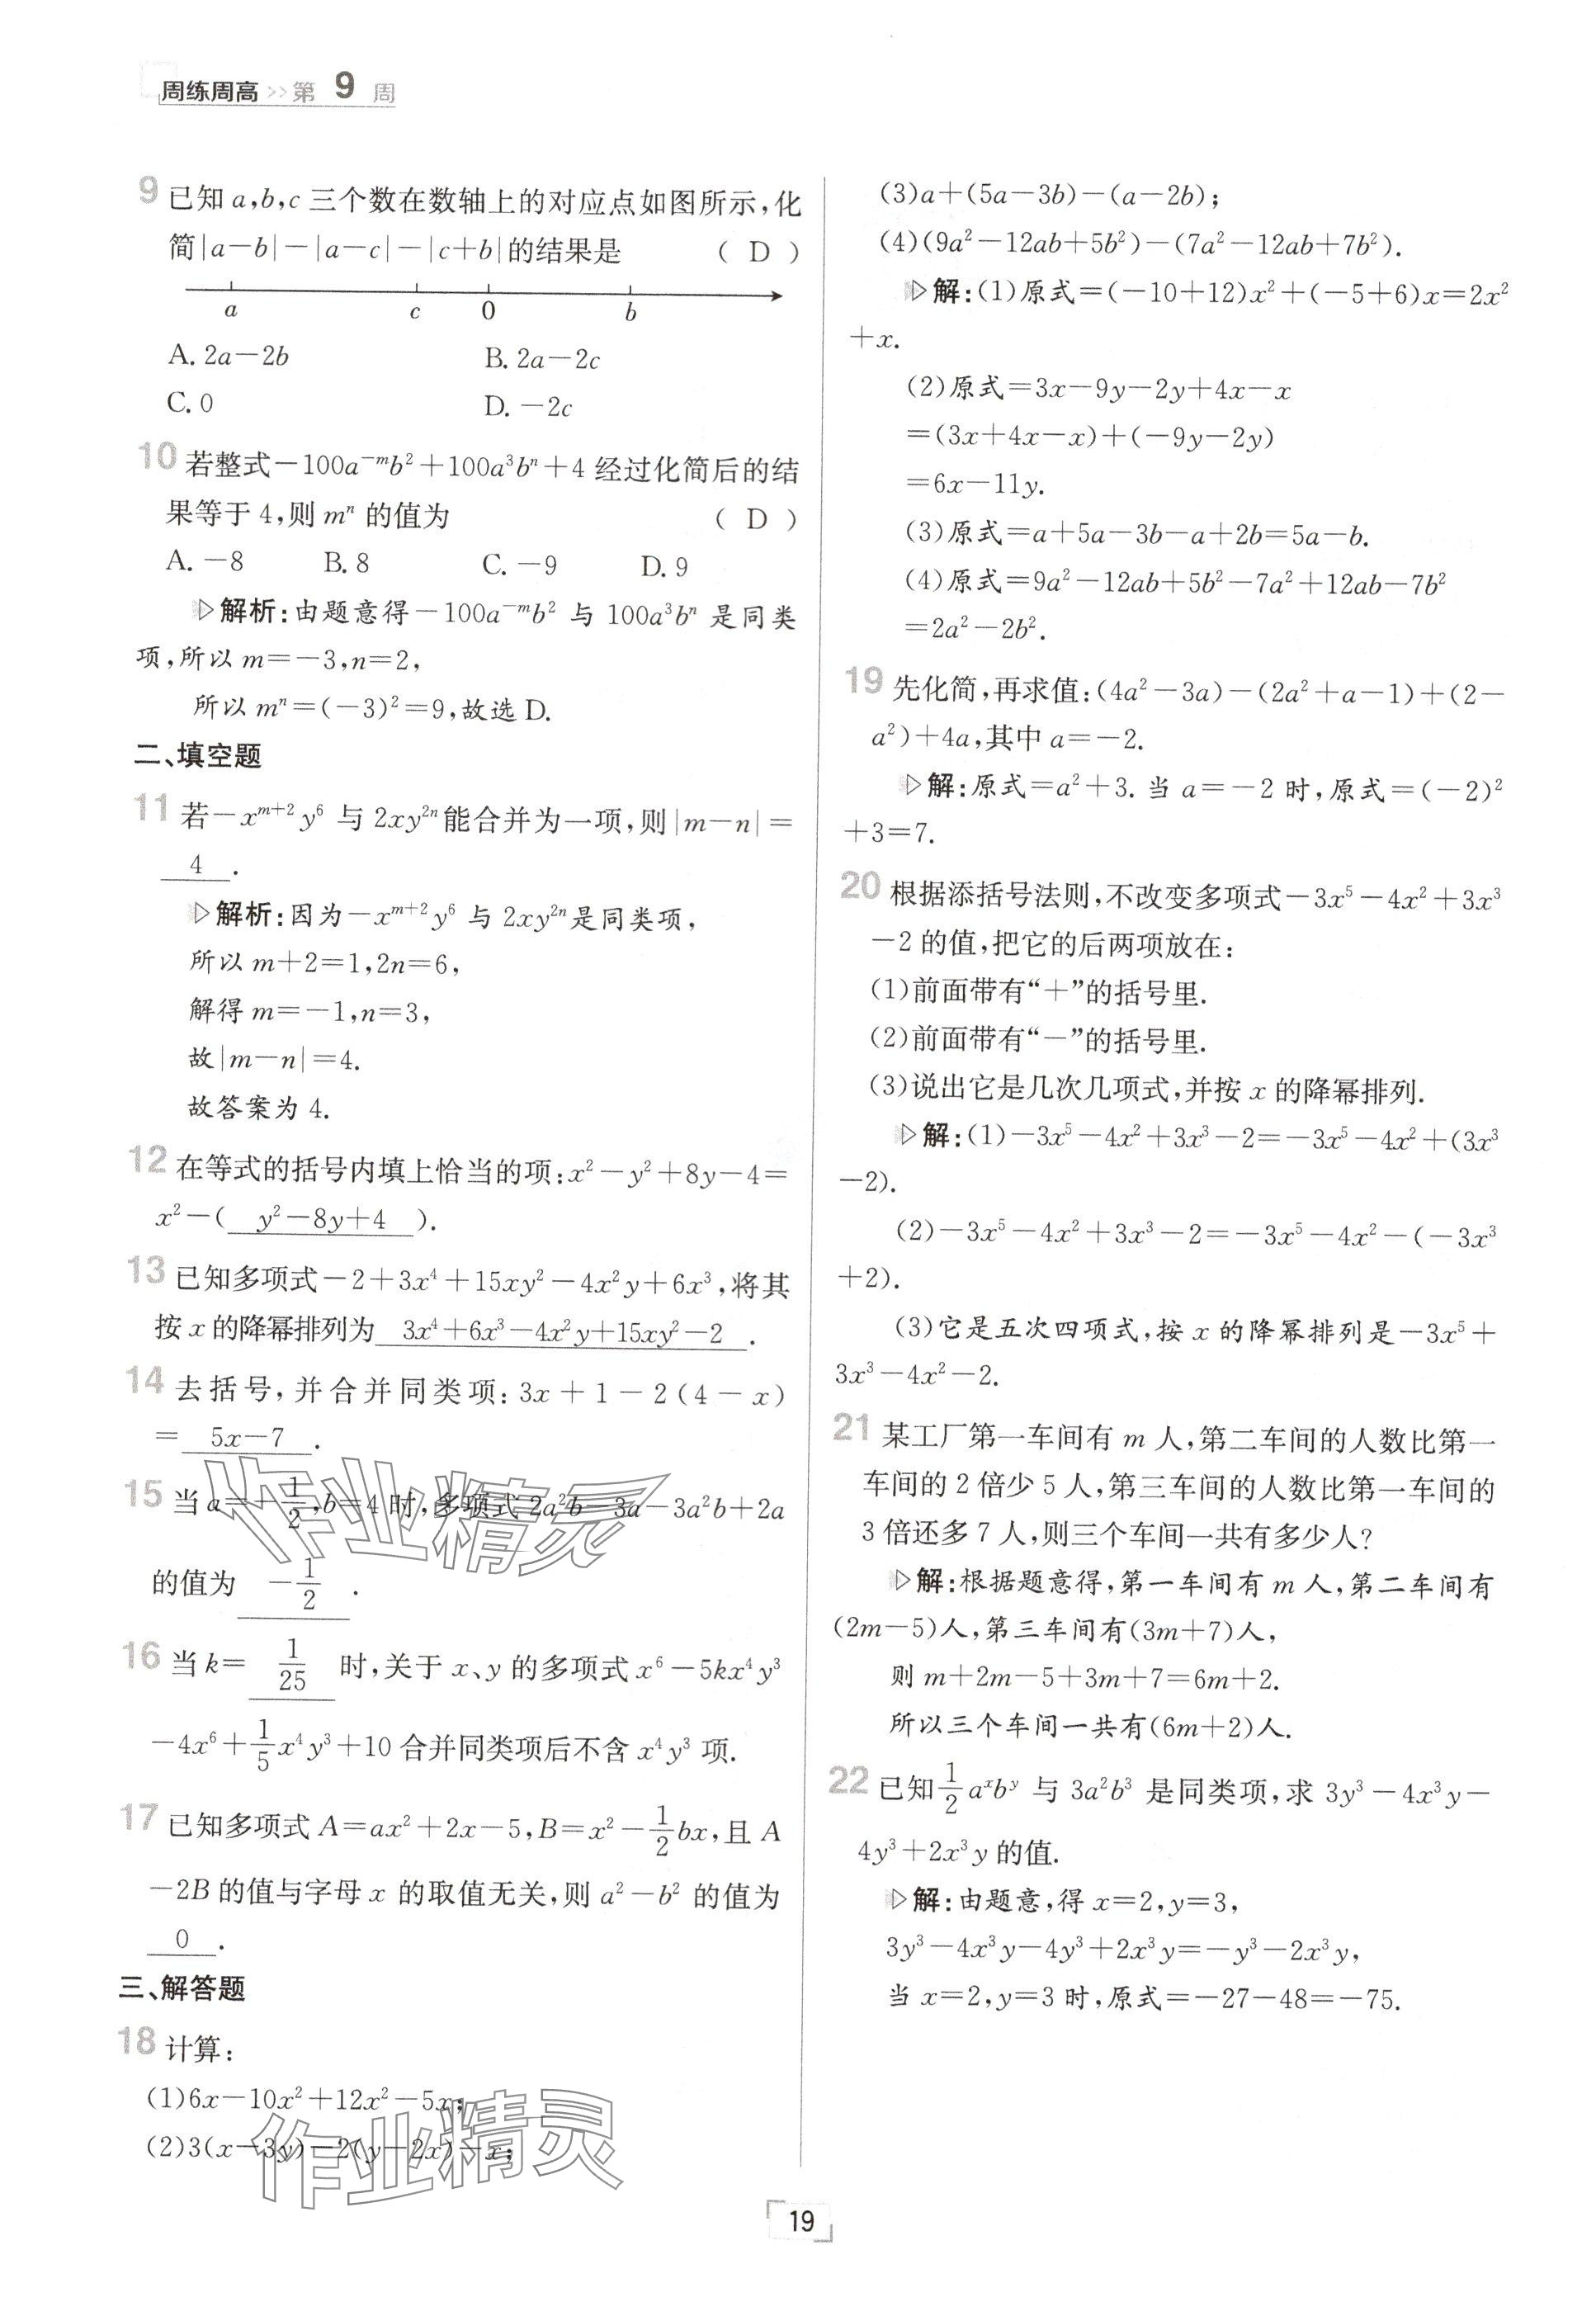 周练周高 >> 第 9 周
9 已知 a,b,c 三个数在数轴上的对应点如图所示,化
简|a-b|-|a-c|-|c+b|的结果是 ( D )
a c 0 b
A. 2a-2b B. 2a-2c
C. 0 D. -2c
10 若整式-100a⁻ᵐb²+100a³bⁿ+4 经过化简后的结
果等于 4,则 mⁿ 的值为 ( D )
A. -8 B. 8 C. -9 D. 9
▷解析:由题意得-100a⁻ᵐb² 与 100a³bⁿ 是同类
项,所以 m=-3,n=2,
所以 mⁿ=(-3)²=9,故选 D.
二、填空题
11 若-xᵐ⁺²y⁶ 与 2xy²ⁿ能合并为一项,则|m-n|=
4 .
▷解析:因为-xᵐ⁺²y⁶ 与 2xy²ⁿ是同类项,
所以 m+2=1,2n=6,
解得 m=-1,n=3,
故|m-n|=4.
故答案为 4.
12 在等式的括号内填上恰当的项:x²-y²+8y-4=
x²-( y²-8y+4 ).
13 已知多项式-2+3x⁴+15xy²-4x²y+6x³,将其
按 x 的降幂排列为 3x⁴+6x³-4x²y+15xy²-2 .
14 去括号,并合并同类项:3x+1-2(4-x)
= 5x-7 .
15 当 a=-1/2,b=4 时,多项式 2a²b-3a-3a²b+2a
的值为 -1/2 .
16 当 k= 1/25 时,关于 x、y 的多项式 x⁶-5kx⁴y³
-4x⁶+1/5x⁴y³+10 合并同类项后不含 x⁴y³ 项.
17 已知多项式 A=ax²+2x-5,B=x²-1/2bx,且 A
-2B 的值与字母 x 的取值无关,则 a²-b² 的值为
0 .
三、解答题
18 计算:
(1)6x-10x²+12x²-5x;
(2)3(x-3y)-2(y-2x)-x;
(3)a+(5a-3b)-(a-2b);
(4)(9a²-12ab+5b²)-(7a²-12ab+7b²).
▷解:(1)原式=(-10+12)x²+(-5+6)x=2x²
+x.
(2)原式=3x-9y-2y+4x-x
=(3x+4x-x)+(-9y-2y)
=6x-11y.
(3)原式=a+5a-3b-a+2b=5a-b.
(4)原式=9a²-12ab+5b²-7a²+12ab-7b²
=2a²-2b².
19 先化简,再求值:(4a²-3a)-(2a²+a-1)+(2-
a²)+4a,其中 a=-2.
▷解:原式=a²+3. 当 a=-2 时,原式=(-2)²
+3=7.
20 根据添括号法则,不改变多项式-3x⁵-4x²+3x³
-2 的值,把它的后两项放在:
(1)前面带有“+”的括号里.
(2)前面带有“-”的括号里.
(3)说出它是几次几项式,并按 x 的降幂排列.
▷解:(1)-3x⁵-4x²+3x³-2=-3x⁵-4x²+(3x³
-2).
(2)-3x⁵-4x²+3x³-2=-3x⁵-4x²-(-3x³
+2).
(3)它是五次四项式,按 x 的降幂排列是-3x⁵+
3x³-4x²-2.
21 某工厂第一车间有 m 人,第二车间的人数比第一
车间的 2 倍少 5 人,第三车间的人数比第一车间的
3 倍还多 7 人,则三个车间一共有多少人?
▷解:根据题意得,第一车间有 m 人,第二车间有
(2m-5)人,第三车间有(3m+7)人,
则 m+2m-5+3m+7=6m+2.
所以三个车间一共有(6m+2)人.
22 已知1/2aˣbʸ 与 3a²b³ 是同类项,求 3y³-4x³y-
4y³+2x³y 的值.
▷解:由题意,得 x=2,y=3,
3y³-4x³y-4y³+2x³y=-y³-2x³y,
当 x=2,y=3 时,原式=-27-48=-75.
作业精灵
作业精灵
19